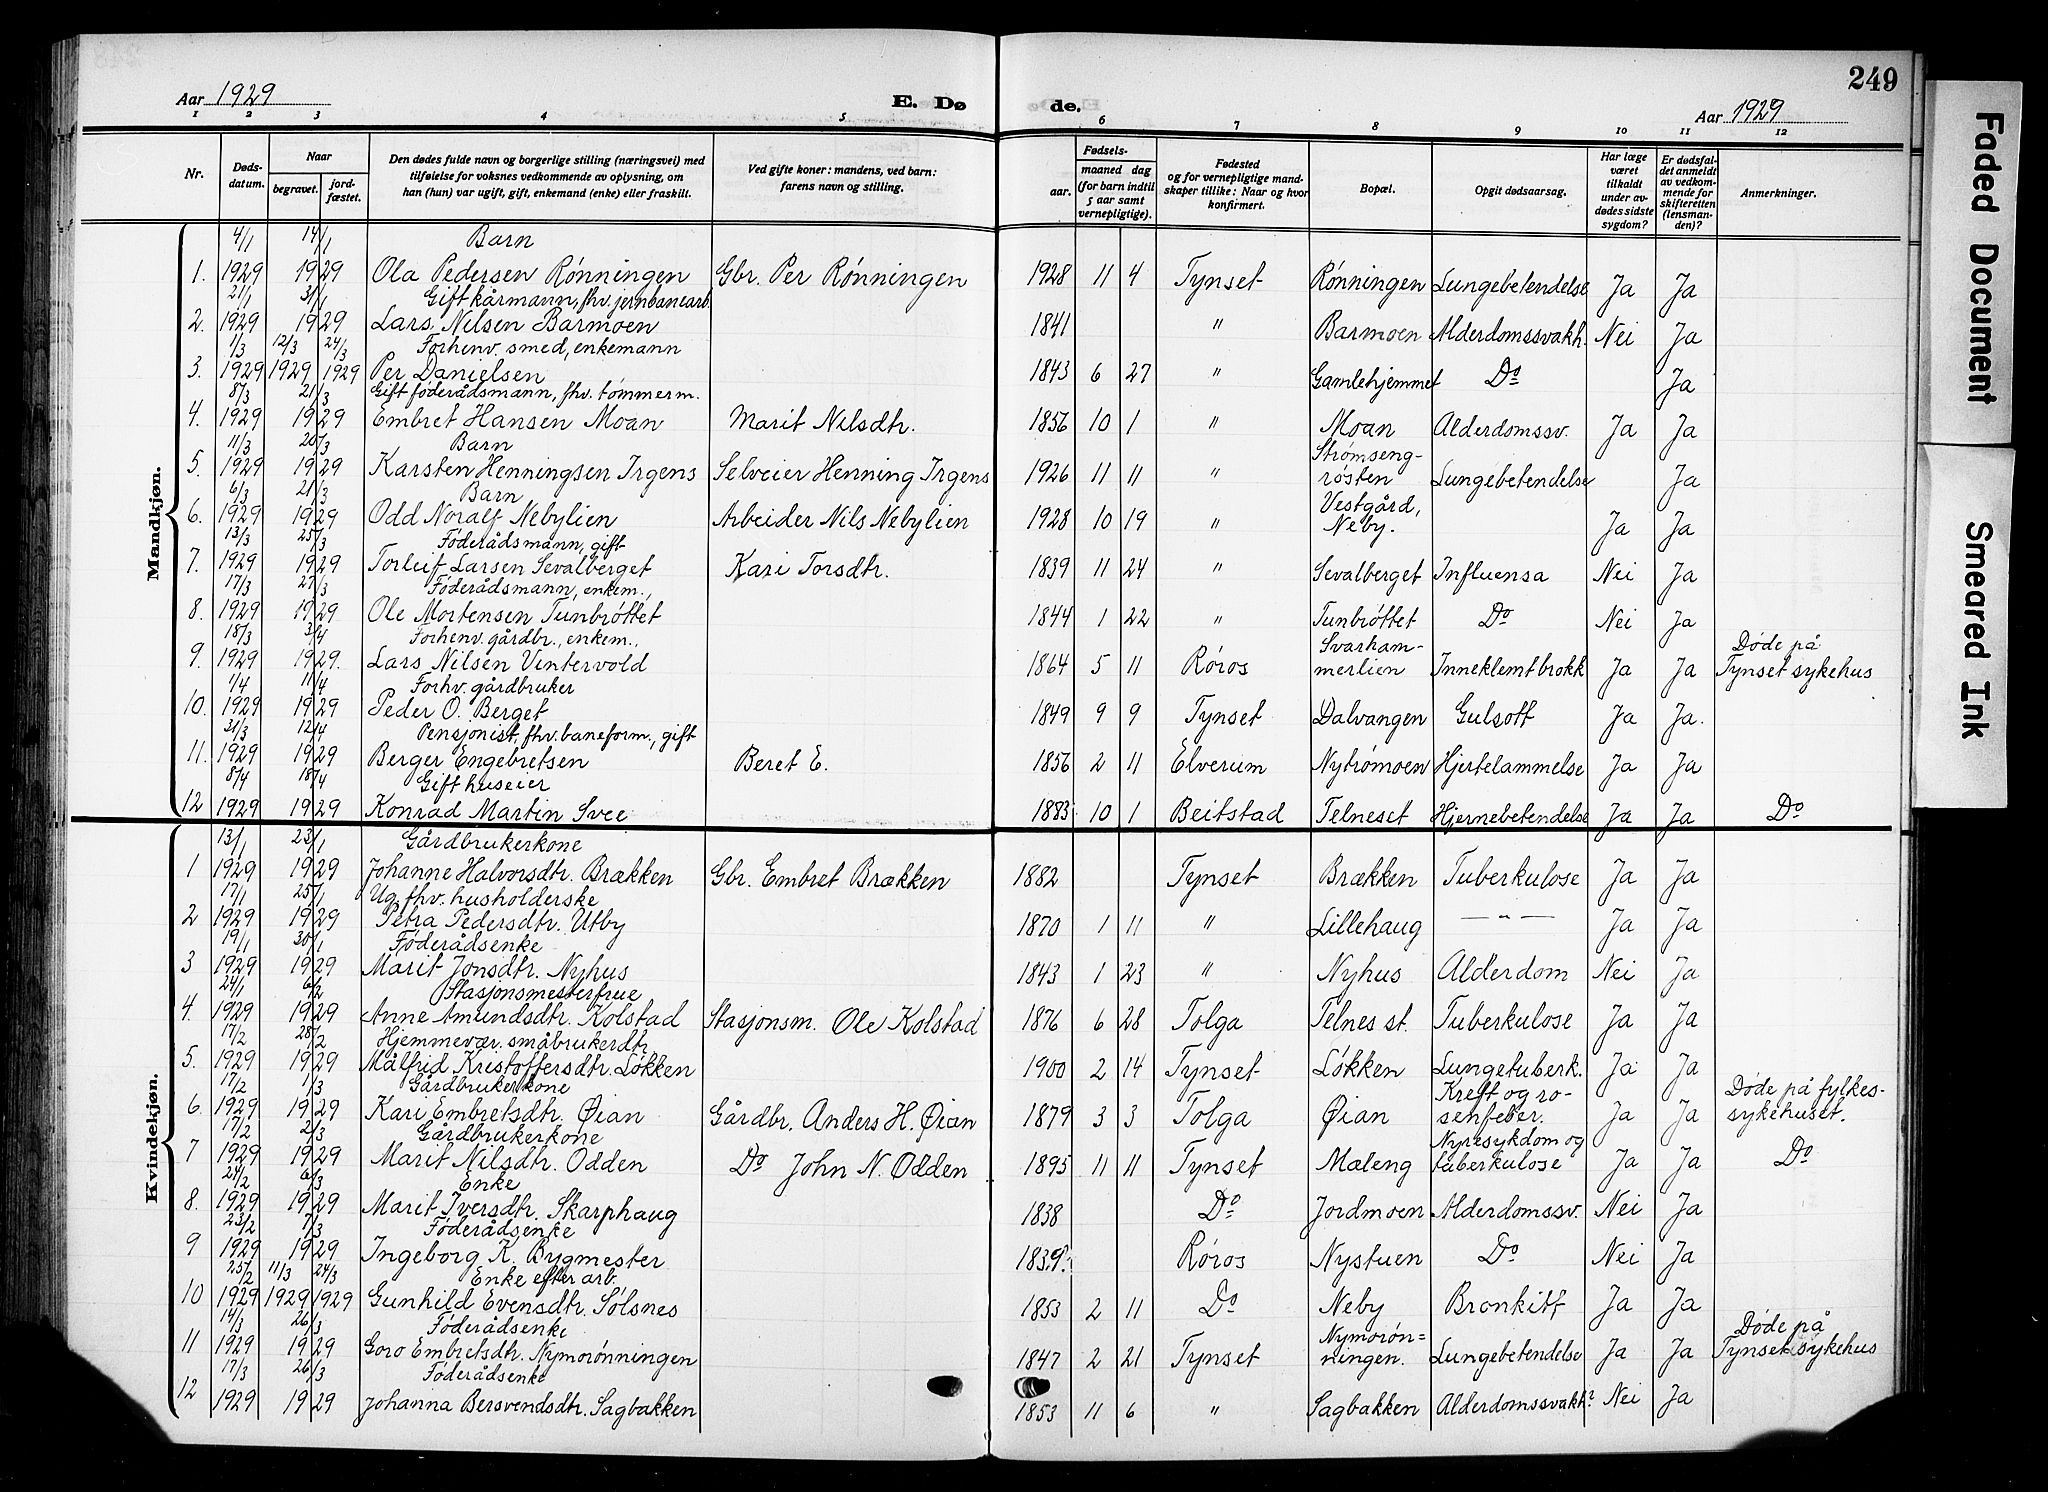 249
Aar 1929 E. Dø de. Aar 1929
1 2 3 4 5 6 7 8 9 10 11 12
Nr.
Døds-datum.
Naar
begravet.
jord-fæstet.
Den dødes fulde navn og borgerlige stilling (næringsvei) med
tilføielse for voksnes vedkommende av oplysning, om
han (hun) var ugift, gift, enkemand (enke) eller fraskilt.
Ved gifte koner: mandens, ved barn:
farens navn og stilling.
Fødsels-
aar.
maaned dag
(for barn indtil
5 aar samt
vernepligtige).
Fødested
og for vernepligtige mand-
skaper tillike: Naar og hvor
konfirmert.
Bopæl.
Opgit dødsaarsag.
Har læge
været
tilkaldt
under av-
dødes sidste
sygdom?
Er dødsfal-
det anmeldt
av vedkom-
mende for
skifteretten
(lensman-
den)?
Anmerkninger.
Mandkjøn.
4/1 14/1 Barn
1. 1929 1929 Ola Pedersen Rønningen Gbr. Per Rønningen 1928 11 4 Tynset Rønningen Lungebetendelse Ja Ja
21/1 31/1 Gift kårmann, fhv. jernbanearb.
2. 1929 1929 Lars Nilsen Barmoen 1841 " Barmoen Alderdomssvakh. Nei Ja
1/3 12/3 24/3 Forhenv. smed, enkemann
3. 1929 1929 1929 Per Danielsen 1843 6 27 " Gamlehjemmet Do Ja
8/3 21/3 Gift føderådsmann, fhv. tømmerm.
4. 1929 1929 Embret Hansen Moan Marit Nilsdtr. 1856 10 1 " Moan Alderdomssv. Ja Ja
11/3 20/3 Barn Strømseng-
5. 1929 1929 Karsten Henningsen Irgens Selveier Henning Irgens 1926 11 11 " røsten Lungebetendelse Ja
6/3 21/3 Barn Vestgård,
6. 1929 1929 Odd Noralf Nebylien Arbeider Nils Nebylien 1928 10 19 " Neby. Ja Ja
13/3 25/3 Føderådsmann, gift
7. 1929 1929 Torleif Larsen Sevalberget Kari Torsdtr. 1839 11 24 " Sevalberget Influensa Nei Ja
17/3 27/3 Føderådsmann, enkem.,
8. 1929 1929 Ole Mortensen Tunbrøttet 1844 1 22 " Tunbrøttet Do Nei Ja
18/3 3/4 Forhenv. gårdbr., enkem.. Svarham- Døde på
9. 1929 1929. Lars Nilsen Vintervold 1864 5 11 Røros merlien Inneklemt brokk Ja Ja Tynset sykehus
1/4 11/4 Forhv. gårdbruker
10. 1929 1929 Peder O. Berget 1849 9 9 Tynset Dalvangen Gulsott Ja Ja.
31/3 12/4 Pensjonist, fhv. baneform., gift
11. 1929 1929 Berger Engebretsen Beret E. 1856 2 11 Elverum Nystrømoen Hjertelammelse Ja Ja
8/4 18/4 Gift huseier
12 1929 1929 Konrad Martin Svee 1883 10 1 Beitstad Telneset Hjernebetendelse Ja Ja Do
Kvindekjøn.
13/1 23/1 Gårdbrukerkone
1 1929 1929 Johanne Halvorsdtr. Brækken Gbr. Embret Brækken 1882 Tynset Brækken Tuberkulose Ja Ja
17/1 25/1 Ug. fhv. husholderske
2 1929 1929 Petra Pedersdtr. Utby 1870 1 11 " Lillehaug — " — Ja Ja
19/1 30/1 Føderådsenke
3 1929 1929 Marit Jonsdtr. Nyhus 1843 1 23 " Nyhus Alderdom Nei Ja
24/1 6/2 Stasjonsmesterfrue
4. 1929 1929 Anne Amundsdtr. Kolstad Stasjonsm. Ole Kolstad 1876 6 28 Tolga Telnes st. Tuberkulose Ja Ja
17/2 28/2 Hjemmevær. småbrukerdtr.
5. 1929 1929 Målfrid Kristoffersdtr. Løkken 1900 2 14 Tynset Løkken Lungetuberk. Ja Ja
17/2 1/3 Gårdbrukerkone Kreft og ro- Døde på fylkes-
6. 1929 1929 Kari Embretsdtr. Øian Gårdbr. Anders H. Øian 1879 3 3 Tolga Øian senfeber. Ja Ja sykehuset.
17/2 2/3 Gårdbrukerkone Nyresykdom og
7 1929 1929 Marit Nilsdtr. Odden Do John N. Odden 1895 11 11 Tynset Mæleng tuberkulose Ja Ja Do
21/2 6/3 Enke
8. 1929 1929 Marit Iversdtr. Skarphaug 1838 Do Jordmoen Alderdomssv. Nei Ja
23/2 7/3 Føderådsenke
9 1929 1929 Ingeborg K. Bygmester 1839. Røros Nystuen Do Nei Ja
25/2 11/3 24/3 Enke efter arb.
10 1929 1929 1929 Gunhild Evensdtr. Sølsnes 1853 2 11 Do Neby Bronkitt Ja Ja
14/3 26/3 Føderådsenke Nymorøn- Døde på
11 1929 1929 Goro Embretsdtr. Nymorønningen 1847 2 21 Tynset ningen. Lungebetendelse Ja Ja Tynset sykehus
17/3 26/3 Føderådsenke
12 1929 1929 Johanna Bersvendsdtr. Sagbakken 1853 11 6 " Sagbakken Alderdomssvakh? Nei Ja
Faded Document
Smeared Ink